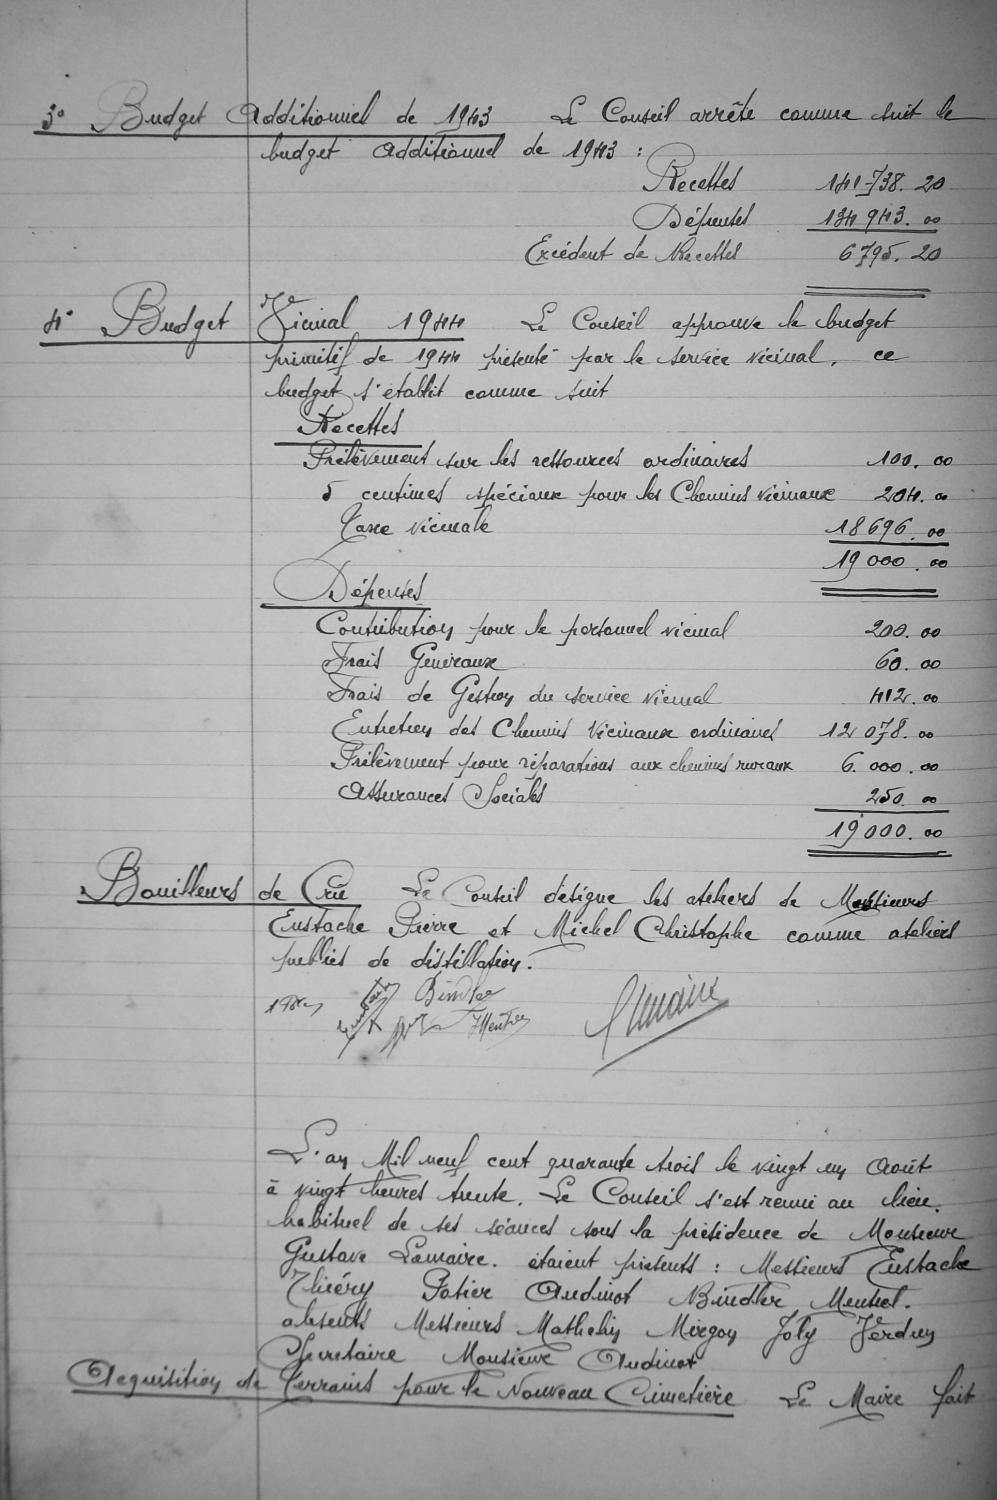 3° Budget Additionnel de 1943 Le Conseil arrête comme suit le
budget Additionnel de 1943 :
Recettes 141738.20
Dépenses 134943.00
Excédent de Recettes 6795.20
4° Budget Vicinal 1944 Le Conseil approuve le budget
primitif de 1944 présenté par le service vicinal, ce
budget s'établit comme suit
Recettes
Prélèvement sur les ressources ordinaires 100.00
5 centimes spéciaux pour les Chemins vicinaux 204.00
Taxe vicinale 18696.00
19000.00
Dépenses
Contribution pour le personnel vicinal 200.00
Frais Généraux 60.00
Frais de Gestion du service vicinal 412.00
Entretien des Chemins Vicinaux ordinaires 12078.00
Prélèvement pour réparations aux chemins ruraux 6.000.00
Assurances Sociales 250.00
19000.00
Bouilleurs de Crû Le Conseil désigne les ateliers de Messieurs
Eustache Pierre et Michel Christophe comme ateliers
publics de distillation.
Bindler
Lemaire
L'an Mil neuf cent quarante trois le vingt un Août
à vingt heures trente. Le Conseil s'est réuni au lieu.
habituel de ses séances sous la présidence de Monsieur
Gustave Lemaire. étaient présents : Messieurs Eustache
Thiéry Potier Audinot Bindler Mentrel.
absents Messieurs Mathelin Mirgon Joly Verdun
Secrétaire Monsieur Audinot
Acquisition de Terrains pour le Nouveau Cimetière Le Maire fait